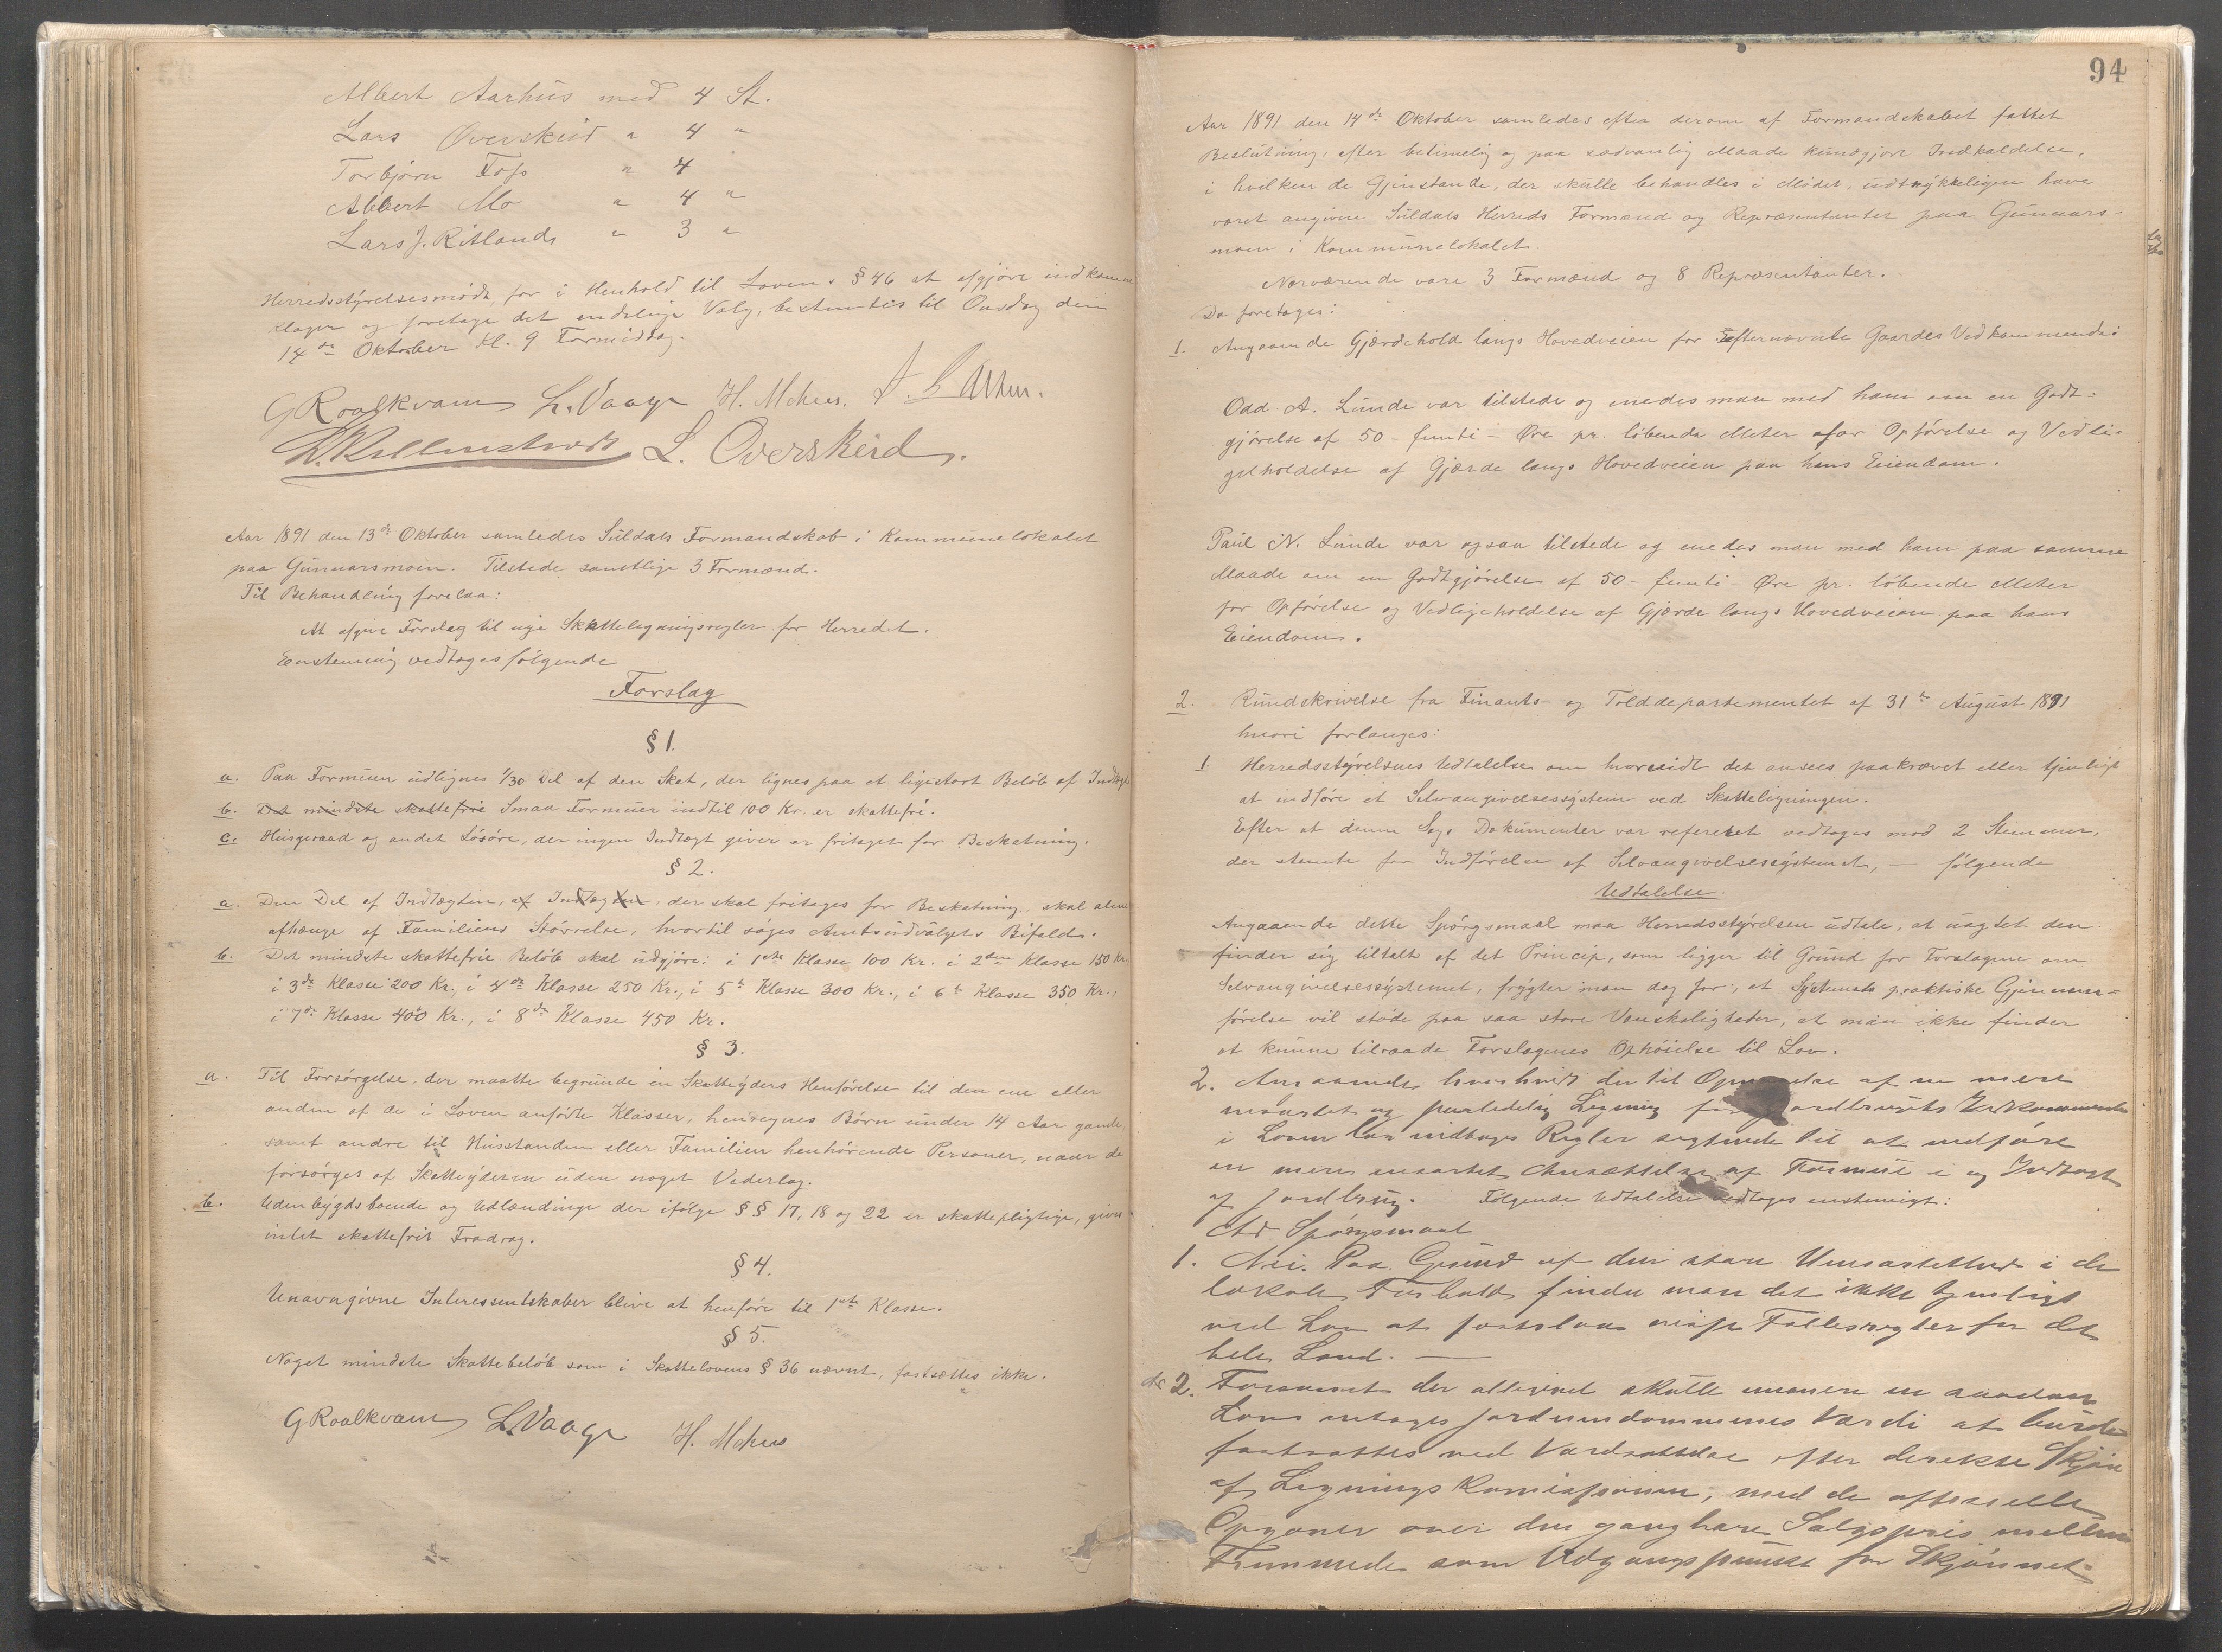 Albert Aarhus med 4 St.
Lars Överskeid " 4 "
Torbjørn Foss " 4
Albert Mo " 4 "
Lars J. Ritlands " 3 "
Herredsstyrelsesmøde, for i Henhold til Lovens § 46 at afgjøre indkomne
Klager og foretage det endelige Valg, bestemtes til Onsdag den
14de Oktober Kl. 9 Formiddag.
G Roalkvam L. Vaage H. Mehus.
L. Overskeid.
Aar 1891 den 13de Oktober samledes Suldals Formandskab i Kommunelokalet
paa Gunnarsmoen. Tilstede samtlige 3 Formænd.
Til Behandling forelaa:
At afgive Forslag til nye Skatteligningsregler for Herredet.
Enstemmig vedtoges følgende
Forslag
§ 1.
a. Paa Formuen udlignes 1/30 Del af den Skat, der lignes paa et ligestort Beløb af Indtægt
b. Det mindste skattefrie Smaa Formuer indtil 100 Kr. er skattefri.
c. Husgeraad og andet Løsøre, der ingen Indtægt giver er fritaget for Beskatning.
§ 2.
a. Den Del af Indtægten, af Indtægten, der skal fritages for Beskatning, skal alene
afhænge af Familiens Størrelse, hvortil søges Amtsudvalgets Bifald.
b. Det mindste skattefrie Beløb skal udgjøre: i 1ste Klasse 100 Kr. i 2den Klasse 150 Kr.
i 3de Klasse 200 Kr., i 4de Klasse 250 Kr., i 5te Klasse 300 Kr., i 6te Klasse 350 Kr.,
i 7de Klasse 400 Kr., i 8de Klasse 450 Kr.
§ 3.
a. Til Forsørgelse, der maatte begrunde en Skatteyders Henførelse til den ene eller
anden af de i Loven anførte Klasser, henregnes Børn under 14 Aar gamle,
samt andre til Husstanden eller Familien henhørende Personer, naar de
forsørges af Skatteyderen uden noget Vederlag.
b. Udenbygdsboende og Udlændinge der ifølge §§ 17, 18 og 22 er skattepligtige, gives
intet skattefrit Fradrag.
§ 4.
Unavngivne Interessentskaber blive at henføre til 1ste Klasse.
§ 5.
Noget mindste Skattebeløb som i Skattelovens § 36 nævnt, fastsættes ikke.
G Roalkvam L. Vaage H. Mehus
94
Aar 1891 den 14de Oktober samledes efter derom af Formandskabet fattet
Beslutning, efter betimelig og paa sædvanlig Maade kundgjort Indkaldelse,
i hvilken de Gjenstande, der skulle behandles i Mødet, udtrykkeligen have
været angivne Suldals Herreds Formænd og Repræsentanter paa Gunnars-
moen i Kommunelokalet.
Nærværende vare 3 Formænd og 8 Repræsentanter.
Da foretoges:
1. Angaaende Gjærdehold langs Hovedveien for Efternævnte Gaardes Vedkommende:
Odd A. Lunde var tilstede og enedes man med ham om en Godt-
gjørelse af 50 - femti - Øre pr. løbende Meter for Opførelse og Vedli-
geholdelse af Gjærde langs Hovedveien paa hans Eiendom.
Paul N. Lunde var ogsaa tilstede og enedes man med ham paa samme
Maade om en Godtgjørelse af 50 - femti - Øre pr. løbende Meter
for Opførelse og Vedligeholdelse af Gjærde langs Hovedveien paa hans
Eiendom.
2. Rundskrivelse fra Finants- og Tolddepartementet af 31te August 1891
hvori forlanges:
1. Herredsstyrelsens Udtalelse om hvorvidt det ansees paakrævet eller tjenligt
at indføre et Selvangivelsessystem ved Skatteligningen.
Efter at denne Sags Dokumenter var refereret vedtoges mod 2 Stemmer,
der stemte for Indførelse af Selvangivelsessystemet, - følgende
Udtalelse.
Angaaende dette Spørgsmaal maa Herredsstyrelsen udtale, at uagtet den
finder sig tiltalt af det Princip, som ligger til Grund for Forslagene om
Selvangivelsessystemet, frygter man dog for, at Systemets praktiske Gjennem-
førelse vil støde paa saa store Vanskeligheder, at man ikke finder
at kunne tilraade Forslagenes Ophøielse til Lov.
2. Angaaende hvorhvidt der til Opnaaelse af en mere
ensartet og paalidelig Ligning for Jordbrugets Vedkommende
i Loven bør indtages Regler sigtende til at medføre
en mere ensartet Ansættelse af Formue i og Indtægt
af Jordbrug. Følgende Udtalelse vedtoges enstemmigt:
Ad Spørgsmaal
1. Nei. Paa Grund af den store Uensartethed i de
lokale Forholde finder man det ikke tjenligt
ved Lov at fastslaa visse Fællesregler for det
hele Land.
do 2. Forsaavidt der alligevel skulle emanere en saadan
Lov antages Jordeiendommenes Værdi at burde
fastsættes ved Værdsættelse efter direkte Skjøn
af Ligningskomissionen, med de officielle
Opgaver over den gangbare Salgspris mellem
Fremmede som Udgangspunkt for Skjønnet.